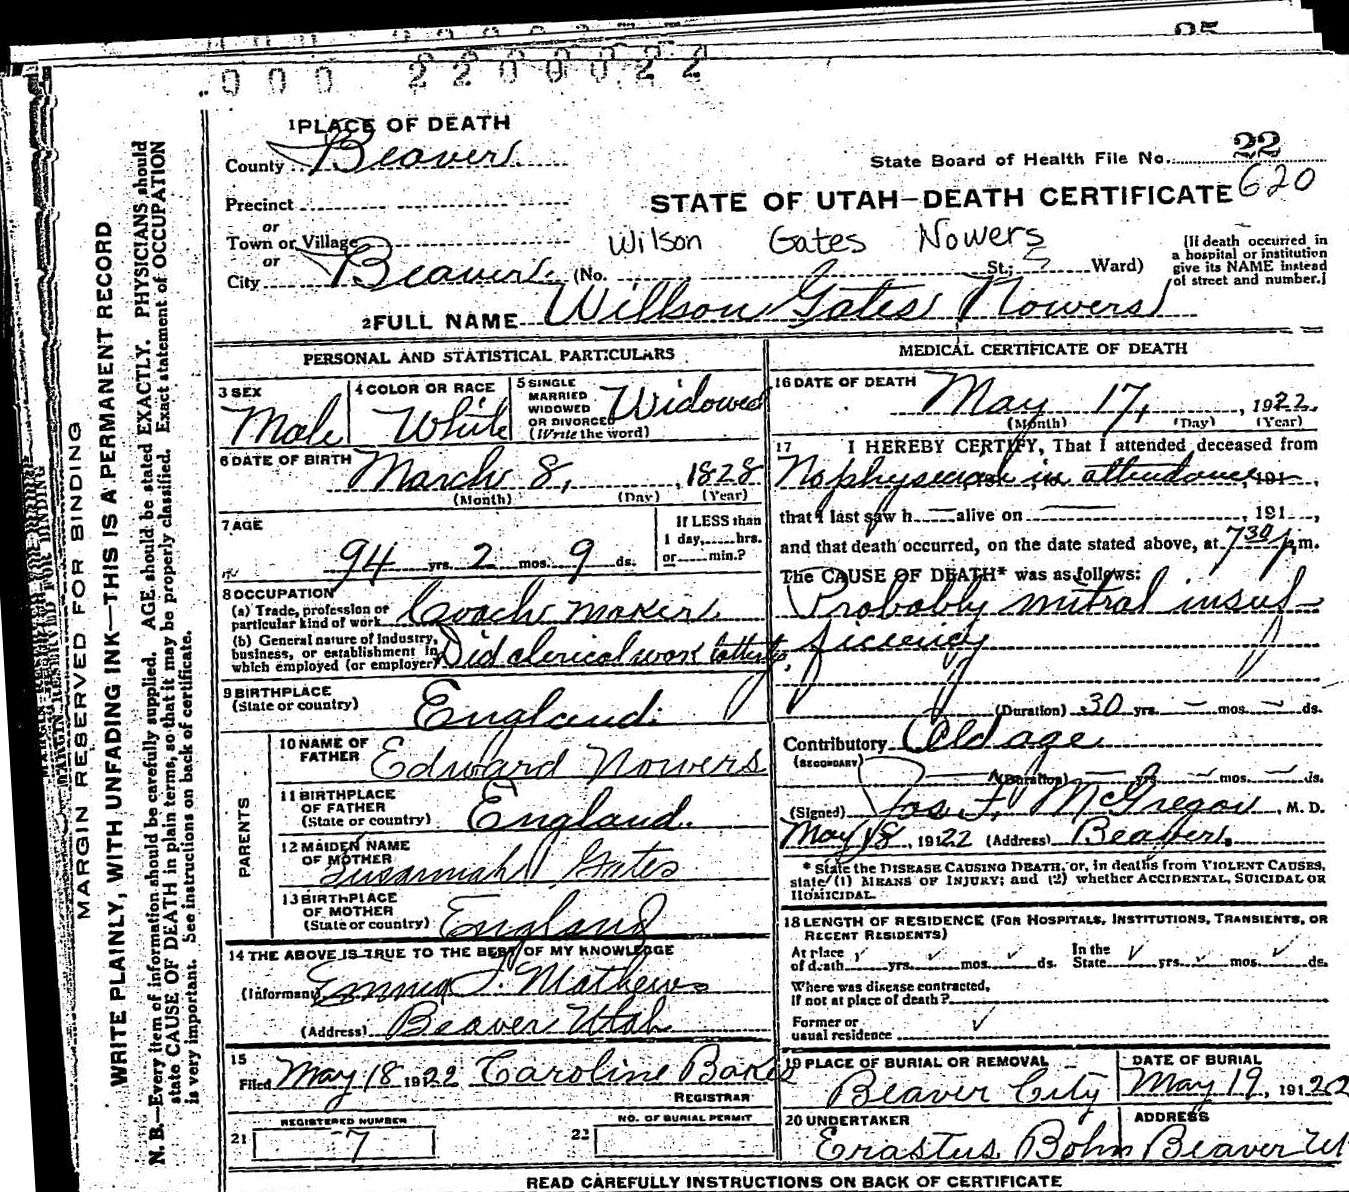 25
000 2200022
1 PLACE OF DEATH
County Beaver
State Board of Health File No. 22
620
Precinct
STATE OF UTAH—DEATH CERTIFICATE
or
Town or Village
Wilson Gates Nowers
or
City Beaver (No. St.; Ward)
(If death occurred in
a hospital or institution
give its NAME instead
of street and number.)
2 FULL NAME Willson Gates Nowers
PERSONAL AND STATISTICAL PARTICULARS
3 SEX
Male
4 COLOR OR RACE
White
5 SINGLE
MARRIED
WIDOWED
OR DIVORCED
(Write the word)
Widowed
6 DATE OF BIRTH
March 8, 1828
(Month) (Day) (Year)
7 AGE
94 yrs. 2 mos. 9 ds.
If LESS than
1 day, hrs.
or min.?
8 OCCUPATION
(a) Trade, profession or
particular kind of work
Coach maker
(b) General nature of Industry,
business, or establishment in
which employed (or employer)
Did clerical work latterly.
9 BIRTHPLACE
(State or country)
England.
PARENTS
10 NAME OF
FATHER
Edward Nowers
11 BIRTHPLACE
OF FATHER
(State or country)
England.
12 MAIDEN NAME
OF MOTHER
Susannah Gates
13 BIRTHPLACE
OF MOTHER
(State or country)
England
14 THE ABOVE IS TRUE TO THE BEST OF MY KNOWLEDGE
(Informant) Emma S. Mathews
(Address) Beaver Utah
15
Filed May 18 1922 Caroline Baker
REGISTRAR
21
REGISTERED NUMBER
7
22
NO. OF BURIAL PERMIT
MEDICAL CERTIFICATE OF DEATH
16 DATE OF DEATH
May 17, 1922.
(Month) (Day) (Year)
17 I HEREBY CERTIFY, That I attended deceased from
No physician in attendance 191
that I last saw h alive on , 191 ,
and that death occurred, on the date stated above, at 7 30 p.m.
The CAUSE OF DEATH* was as follows:
Probably mitral insuf
ficiency
(Duration) 30 yrs. mos. ds.
Contributory Old age
(SECONDARY)
(Duration) yrs. mos. ds.
(Signed) Jas. F. McGregor, M. D.
May 18, 1922 (Address) Beaver.
* State the DISEASE CAUSING DEATH, or, in deaths from VIOLENT CAUSES,
state (1) MEANS OF INJURY; and (2) whether ACCIDENTAL, SUICIDAL OR
HOMICIDAL.
18 LENGTH OF RESIDENCE (FOR HOSPITALS, INSTITUTIONS, TRANSIENTS, OR
RECENT RESIDENTS)
At place
of death yrs. mos. ds.
In the
State yrs. mos. ds.
Where was disease contracted,
If not at place of death?
Former or
usual residence
19 PLACE OF BURIAL OR REMOVAL
Beaver City
DATE OF BURIAL
May 19, 1922
20 UNDERTAKER
Erastus Bohn
ADDRESS
Beaver Ut
READ CAREFULLY INSTRUCTIONS ON BACK OF CERTIFICATE
MARGIN RESERVED FOR BINDING
WRITE PLAINLY, WITH UNFADING INK—THIS IS A PERMANENT RECORD
N. B.—Every item of information should be carefully supplied. AGE should be stated EXACTLY. PHYSICIANS should
state CAUSE OF DEATH in plain terms, so that it may be properly classified. Exact statement of OCCUPATION
is very important. See instructions on back of certificate.